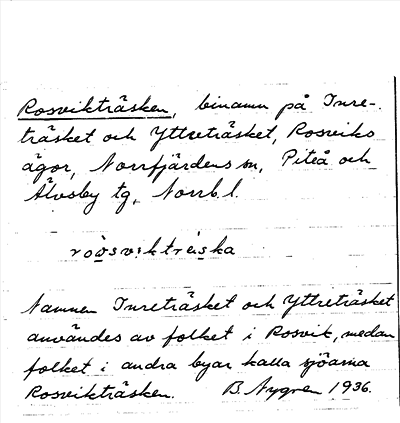 Rosvikträsken, binamn på Inre-
träsket och Yttreträsket, Rosviks
ägor, Norrfjärdens sn, Piteå och
Älvsby tg, Norrb. l.
Namnen Inreträsket och Yttreträsket
användes av folket i Rosvik, medan
folket i andra byar kalla sjöarna
Rosvikträsken. B. Nygren 1936.